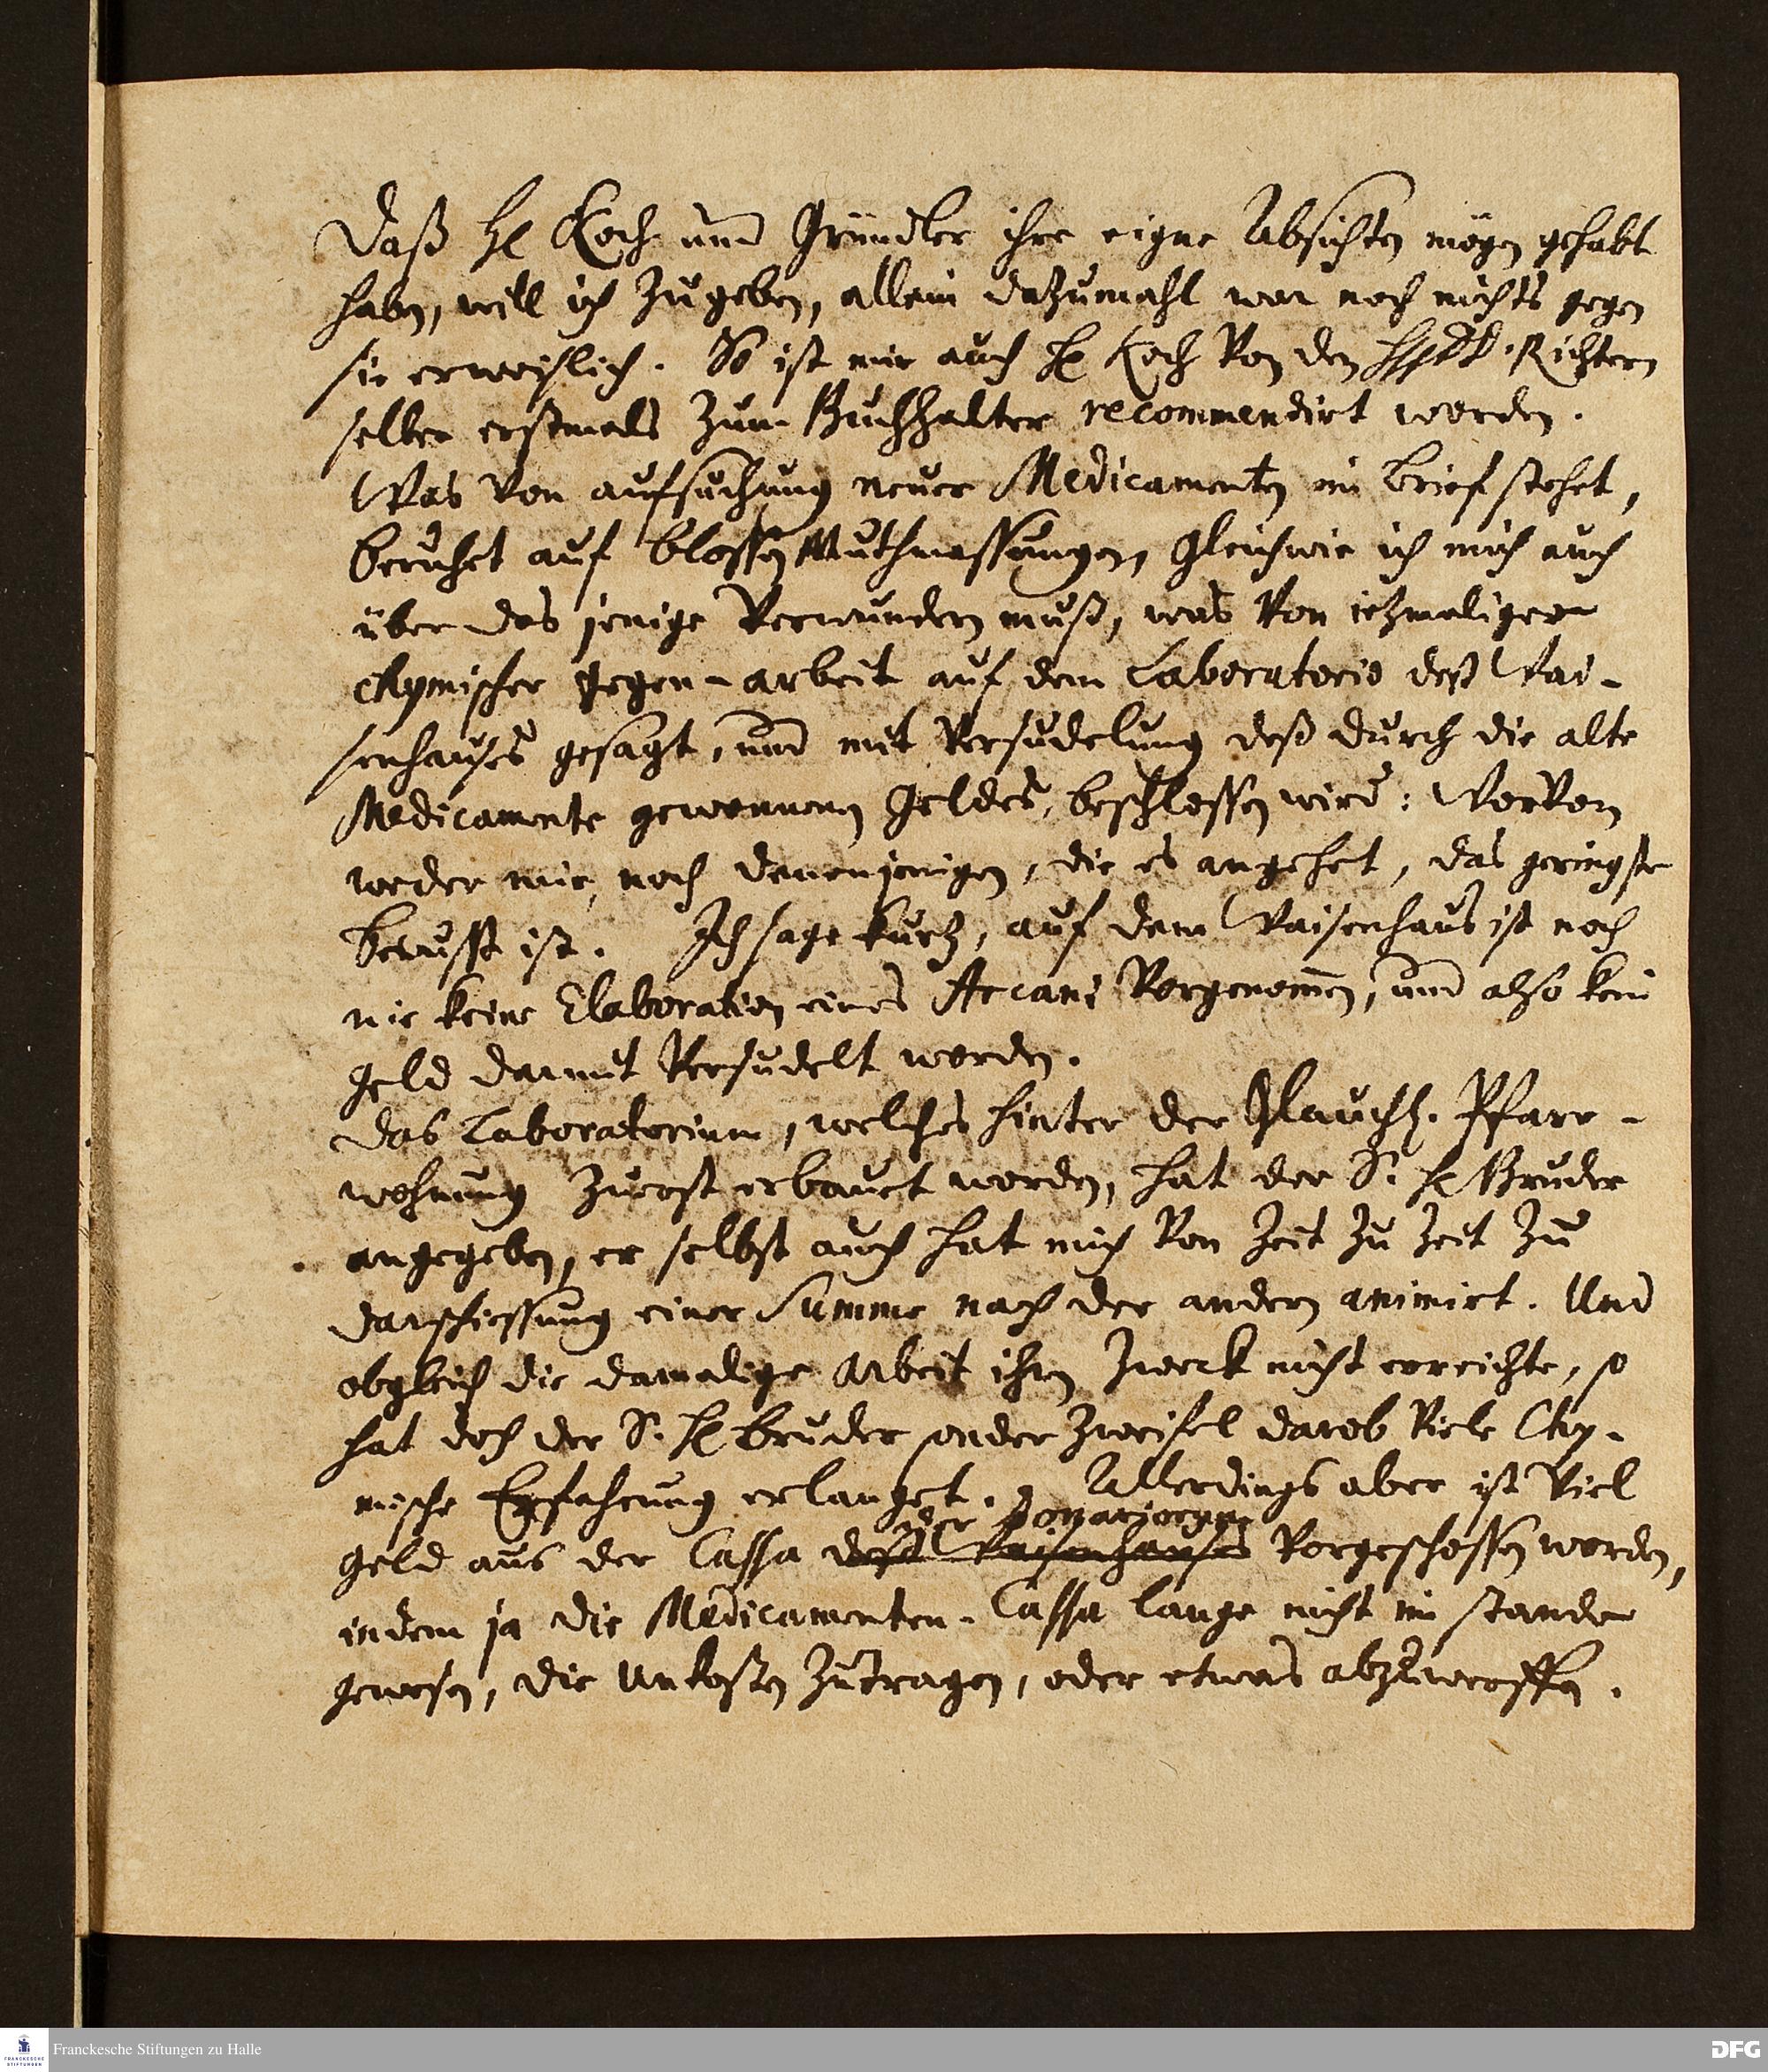 Daß H. Koch und Gründler ihre eigne Absichten mögen gehabt
haben, will ich zugeben, allein dazumahl war noch nichts gegen
sie erweißlich. So ist mir auch H. Koch von den HH. Richtern
selber erstmals zum Buchhalter recommendirt worden.
Was von aufsuchung neuer Medicamenten im brief stehet,
beruhet auf blossen Muthmassungen, Gleichwie ich mich auch
über das jenige verwundern muß, was von jetzmaliger
chymischer gegen-arbeit auf dem Laboratorio deß Wai-
senhauses gesagt, und mit versudelung deß durch die alte
Medicamente gewonnenen geldes, beschlossen wird: Worvon
weder mir, noch denenjenigen, die es angehet, das geringste
bewusst ist. Ich sage kurtz, auf dem Waisenhaus ist noch
nie keine Elaboration eines Arcani vorgenom̄en, und also kein
geld darmit versudelt worden.
Das Laboratorium, welches hinter der Glauchh. Pfarr-
wohnung zuerst erbauet worden, hat der S. H. Bruder
angegeben, er selbst auch hat mich von Zeit zu Zeit zu
darschiessung einer Summe nach der andern animirt. Und
obgleich die damalige Arbeit ihren Zweck nicht erreichte, so
hat doch der S. H. bruder sonder Zweifel darob viele Chy-
mische Erfahrung erlanget. Allerdings aber ist viel
der
geld aus der Cassa deß Waisenhauses vorgeschossen worden,
indem ja die Medicamenten-Cassa lange nicht im stande
gewesen, die Unkosten zutragen, oder etwas abzuwerffen.
Franckesche Stiftungen zu Halle
DFG
FRANCKESCHE
STIFTUNGEN